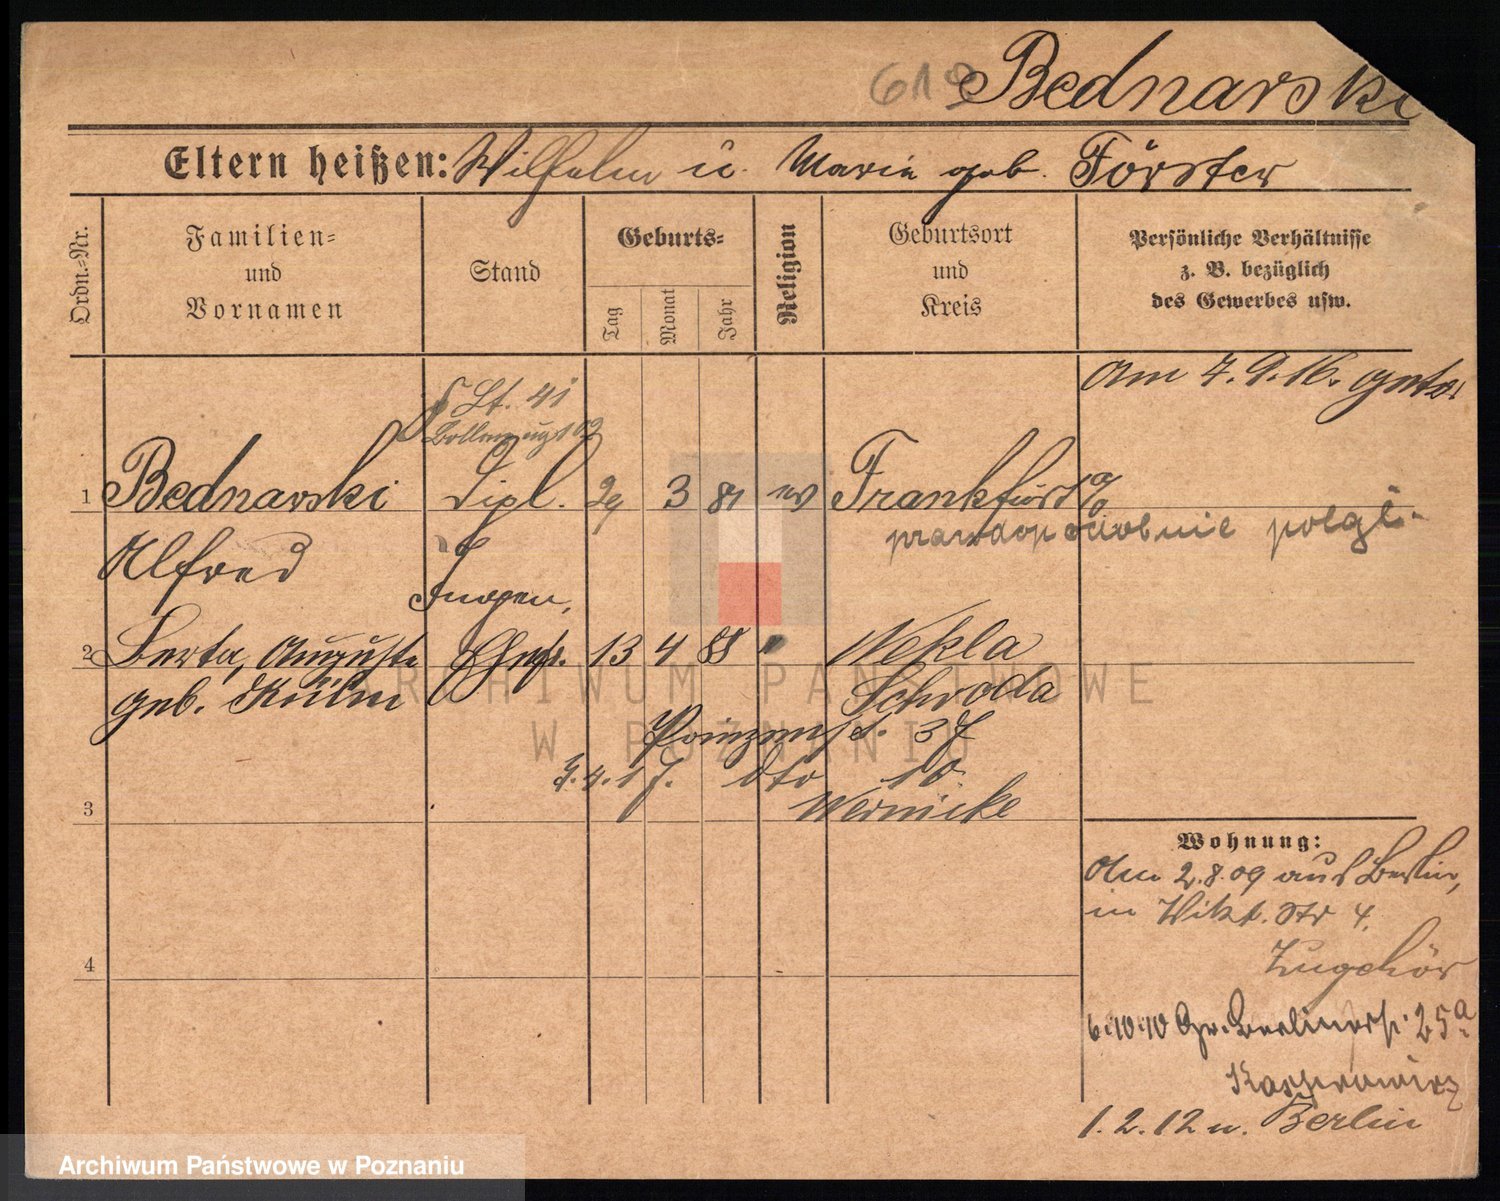 619 Bednarski
Eltern heißen: Wilhelm u. Marie geb. Förster
Ordn.=Nr.
Familien=
und
Vornamen
Stand
Geburts=
Tag
Monat
Jahr
Religion
Geburtsort
und
Kreis
Persönliche Verhältnisse
z. B. bezüglich
des Gewerbes usw.
Am 7.9.16.
Lt. 41
1 Bednarski Dipl. 29 3 81 ev Frankfurt a/O
prawdopodobnie
Alfred
Ingen.
2 Berta, Auguste Ehefr. 13 4 88 " Nekla
geb. Kühn Schroda
Prinzenst. 37
4.17. dto 10
Wernicke
3
Wohnung:
Am 2.8.09 aus Berlin,
in Vikt. Str 4.
Zugehör
4
6.10.10 Gr. Berlinerst. 25a
Kasprowicz
1.2.12 n. Berlin
ARCHIWUM PAŃSTWOWE
W POZNANIU
Archiwum Państwowe w Poznaniu